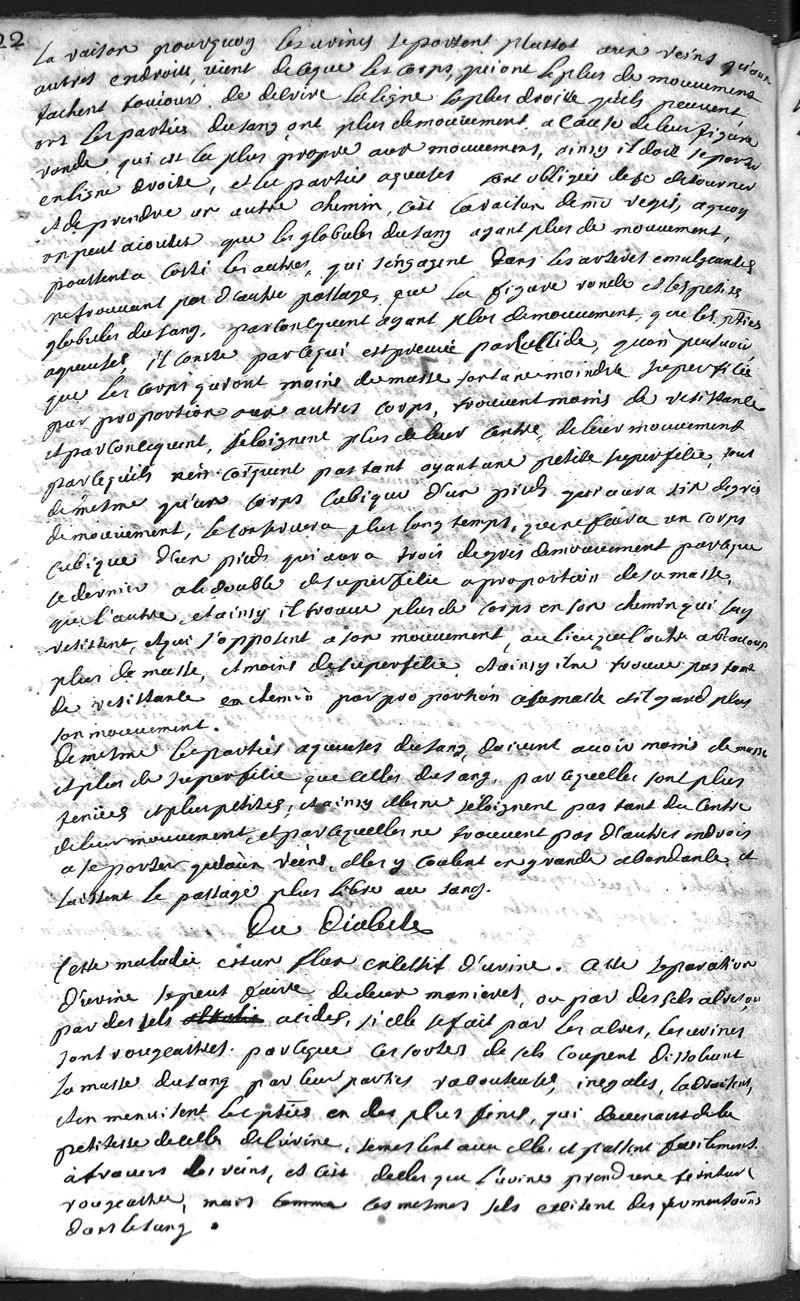 22
La raison pourquoy les urines se portent plustot aux reins qu'aux
autres endroits, vient de ceque les corps, qui ont le plus de mouvement
tachent toujours de delvire la ligne la plus droite qu'ils peuvent,
ors les parties du sang ont plus de mouvement a cause de leur figure
ronde, qui est la plus propre aux mouvement, ainsy il doit se porter
en ligne droite, et les parties aqueuses sont obligées de se detourner
et de prendre un autre chemin, c'est la raison de mr regis, a quoy
on peut aiouter que les globules du sang ayant plus de mouvement,
poussent a costé les autres, qui s'engagent dans les arteres emulgeantes
ne trouvant pas d'autre passage, que la figure ronde et les petits
globules du sang, par consequent ayant plus de mouvement, que les pties
aqueuses, il conste par ce qui est preuvé par Euclide, qu'on peut voir
que les corps qui ont moins de masse sont une moindre superficie
par proportion aux autres corps, trouvent moins de resistance
et par consequent, s'eloignent plus de leur centre, de leur mouvement
parcequ'ils n'en choquent pas tant ayant une petite superficie, tout
de mesme qu'un corps cubique d'un pied, qui aura six degrés
de mouvement, le conservera plus long temps, que ne faira un corps
cubique d'un pied qui aura trois degrés de mouvement parceque
ce dernier a le double de superficie a proportion de sa masse,
que l'autre, et ainsy il trouve plus de corps en son chemin qui luy
resistent, et qui s'opposent a son mouvement, au lieu que l'autre a beaucoup
plus de masse, et moins de superficie, et ainsy il ne trouve pas tant
de resistance en chemin par proportion a sa masse et il garde plus
son mouvement.
De mesme les parties aqueuses du sang, doivent avoir moins de masse
et plus de superficie que celles du sang, parcequelles sont plus
tenües et plus petites, et ainsy elles ne s'eloignent pas tant du centre
de leur mouvement, et parcequelles ne trouvent pas d'autres endrois
a se porter qu'aux reins, elles y coulent en grande abondance, et
laissent le passage plus libre au sang.
Du Diabete
Cette maladie est un flux excessif d'urine. Cette separation
d'urine se peut faire de deux manieres, ou par des sels alres, ou
par des sels acides, si elle se fait par les alres, les urines
sont rougeastres parceque ces sortes de sels coupent dissolvent
la masse du sang par leur parties raboteuses, inegales,
et en menuisent les pties en des plus fines, qui de
petitesse de celle de l'urine, se meslent aux elles, et passent facilement
à travers les reins, et c'est d'elles que l'urine prend une teinture
rougeastre, mais ces mesmes sels excitent des fermentaõns
dans le sang.